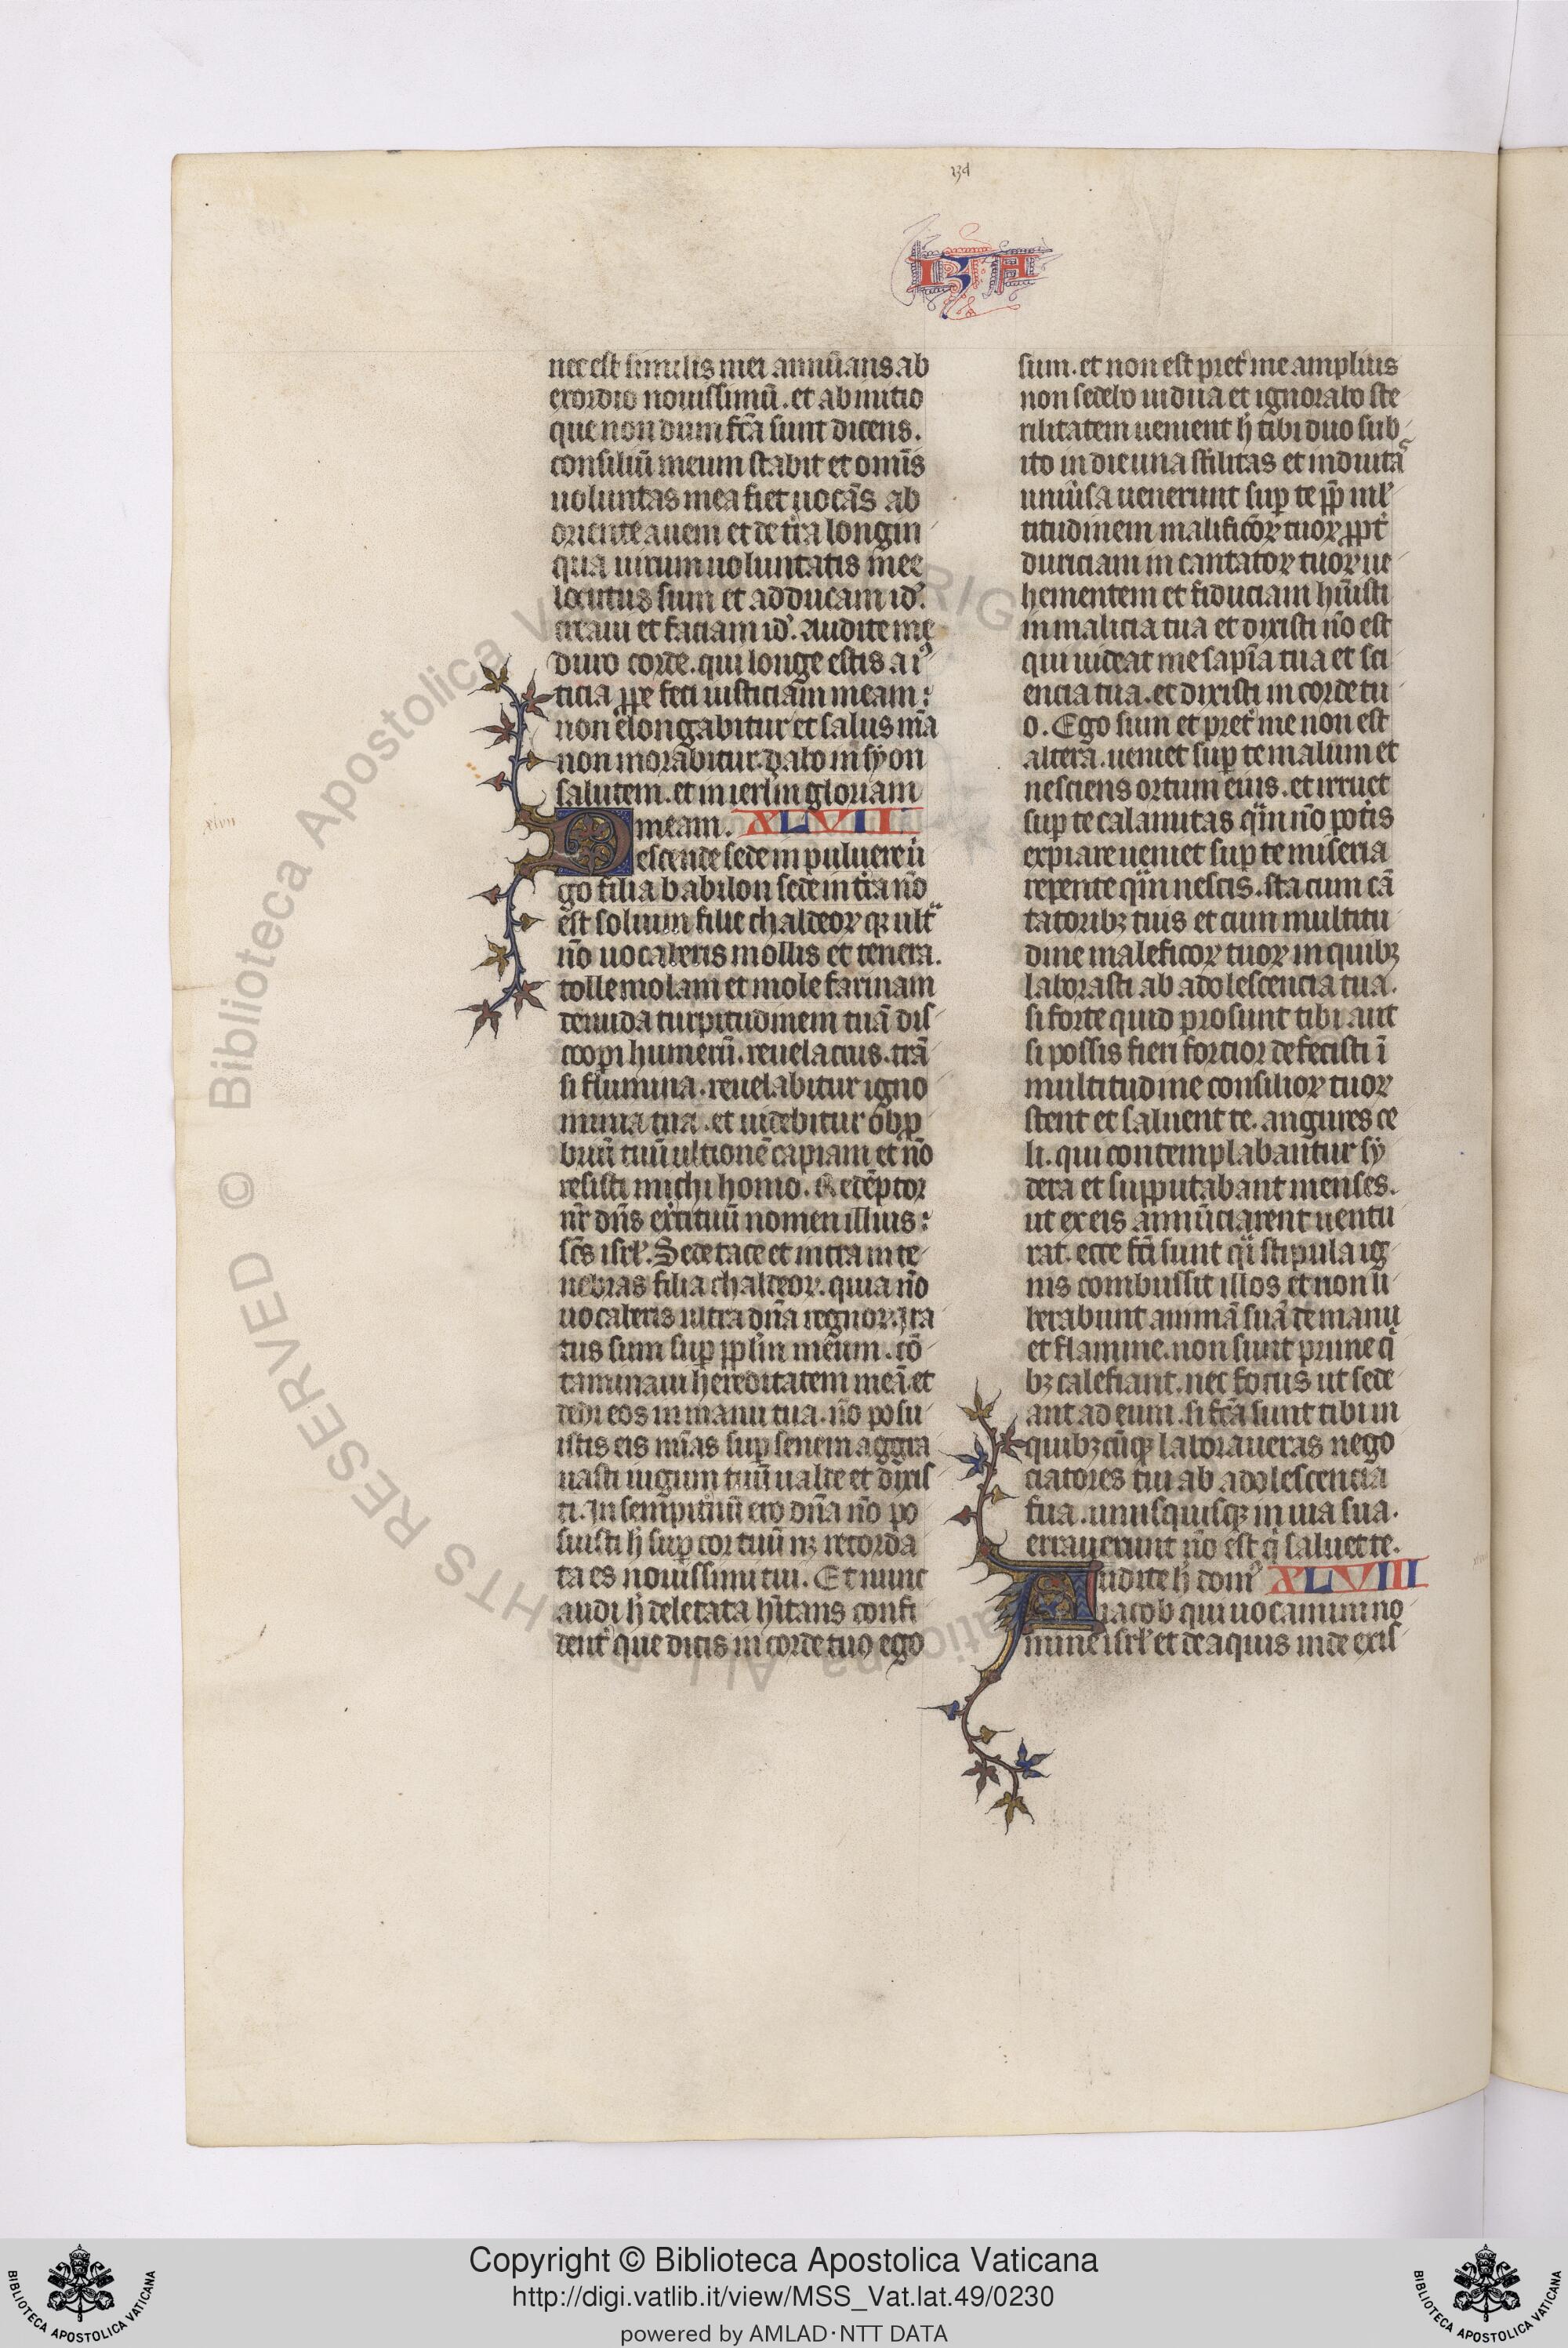 134
ISA
nec est similis mei annūcians ab
exordio nouissimū. et ab initio
que non dum fcā sunt dicens.
consiliū meum stabit et omīs
uoluntas mea fiet uocās ab
oriente auem et de tr̄a longin
qua uirum uoluntatis mee
locutus sum et adducam id.
creaui et faciam id. Audite me
duro corde. qui longe estis a i
ticia ꝓpe feci iusticiam meam:
non elongabitur et salus mā
non morabitur. dabo in syon
salutem. et in ierlm gloriam
meam. XLVII
xlvii
Descende sede in puluere ū
go filia babilon sede in tr̄a nō
est solium filie chaldeoꝝ qꝛ ult̄
nō uocaberis mollis et tenera.
tolle molam et mole farinam
denuda turpitudinem tuā dis
coopi humerū. reuela crus. trā
si flumina. reuelabitur igno
minia tua. et uidebitur obꝓ
briū tuū ultionē capiam et nō
resisti michi homo. Redēptor
nr̄ dn̄s exercituū nomen illius:
scs̄ isrl̄. Sede tace et intra in te
nebras filia chaldeoꝝ. quia nō
uocaberis ultra dn̄a regnoꝝ. Ira
tus sum suꝑ pplm̄ meum. cō
taminaui hereditatem meā. et
dedi eos in manu tua. nō posu
istis eis mīas suꝑ senem aggra
uasti iugum tuū ualde et dixis
ti. In sempitnū ero dn̄a nō po
suisti h̄ suꝑ cor tuū nꝫ recorda
ta es nouissimi tui. Et nunc
audi h̄ delicata hītans confi
dent̄ que dicis in corde tuo ego
sum. et non est pret̄ me amplius
non sedebo uidua et ignorabo ste
rilitatem uenient h̄ tibi duo sub
ito in die una stilitas et induitā
uniūsa uenerunt suꝑ te ꝓp̄ ml̄
titudinem malificōꝝ tuoꝝ ꝓpt̄
duriciam in cantatoꝝ tuoꝝ ue
hementem et fiduciam hūisti
in malicia tua et dixisti nō est
qui uideat me sapīa tua et sci
encia tua. et dixisti in corde tu
o. Ego sum et pret̄ me non est
altera. ueniet suꝑ te malum et
nesciens ortum eius. et irruet
suꝑ te calamitas q̄m nō potis
expiare ueniet suꝑ te miseria
repente q̄m nescis. sta cum cā
tatoribꝫ tuis et cum multitu
dine maleficoꝝ tuoꝝ in quibꝫ
laborasti ab adolescencia tua.
si forte quid prosunt tibi aut
si possis fieri forcior defecisti ī
multitudine consilioꝝ tuoꝝ
stent et saluent te. augures ce
li. qui contemplabantur sy
dera et supputabant menses.
ut ex eis annūciarent uentu
rat. ecce fcī sunt q̄i stipula ig
nis combussit illos et non li
berabunt animā suā de manu
et flamme. non sunt prune q̄
bꝫ calefiant. nec focus ut sede
ant ad eum. si fcā sunt tibi in
quibꝫcūqꝫ laboraueras nego
ciatores tui ab adolescencia
tua. unusquisqꝫ in uia sua.
errauerunt nō est q̄ saluet te.
Audite h̄ dom XLVIII
iacob qui uocamini no
mine isrl̄ et de aquis iude exis
Copyright © Biblioteca Apostolica Vaticana
http://digi.vatlib.it/view/MSS_Vat.lat.49/0230
powered by AMLAD·NTT DATA
BIBLIOTECA APOSTOLICA VATICANA
BIBLIOTECA APOSTOLICA VATICANA